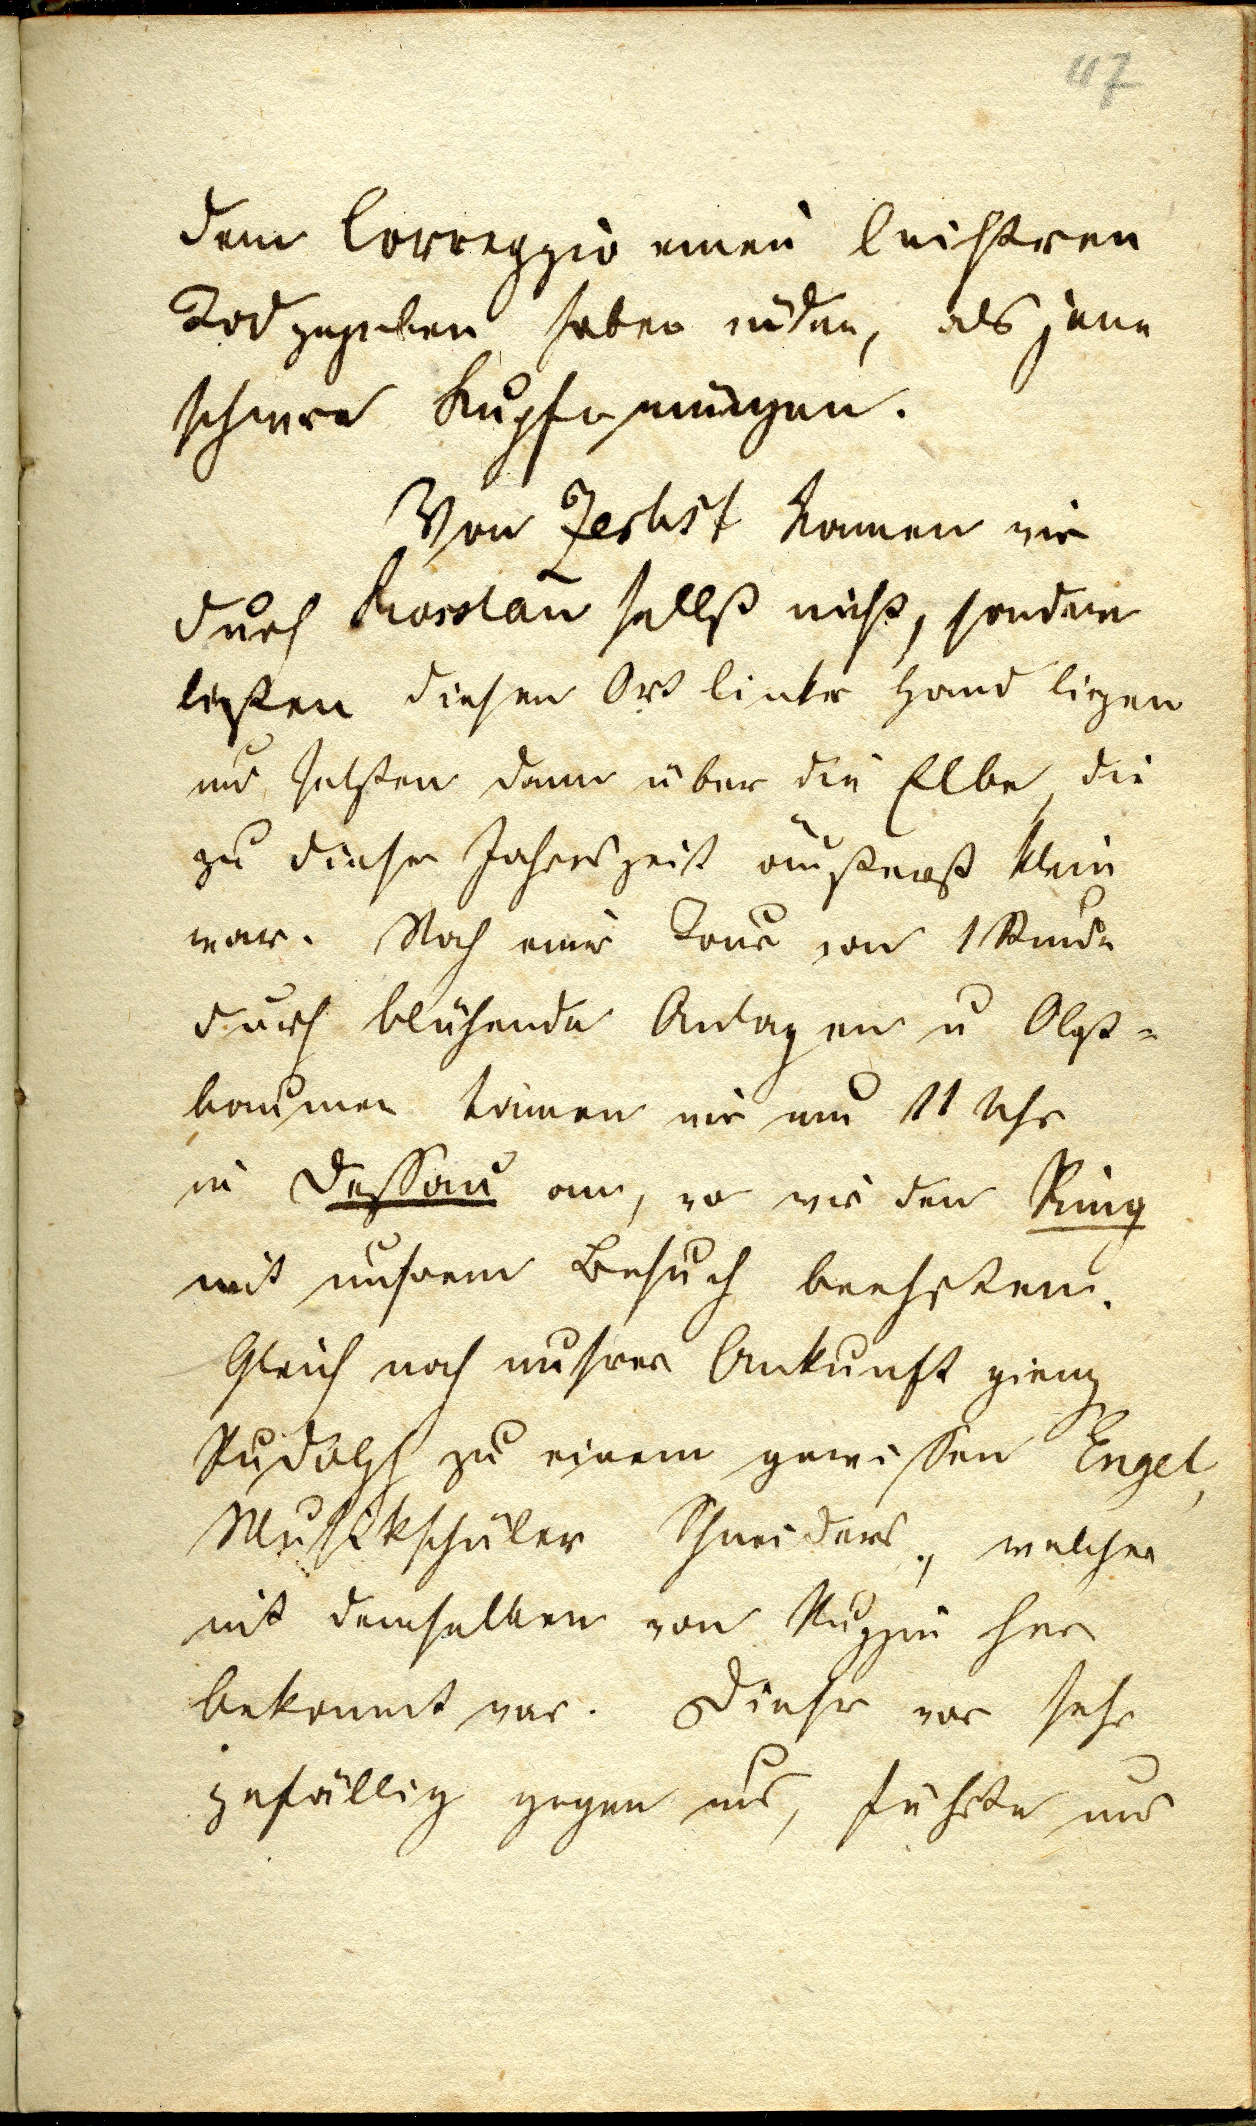 47
dem Correggio einen leichtren
Tod gegeben haben würden, als jene
schwere Kupfermünzen.
Von Zerbst kamen wir
durch Rosslau selbst nicht, sondern
ließen diesen Ort linker Hand liegen
und setzten dann über die Elbe, die
zu dieser Jahreszeit äußerst klein
war. Nach einer Tour von 1 Stunde
durch blühende Anlagen u Obst-
baumen kamen wir um 11 Uhr
in Dessau an, wo wir den Ring
mit unsrem Besuch beehrten.
Gleich nach unsrer Ankunft gieng
Rudolph zu einem gewissen Engel,
Musikschüler Schneiders, welcher
mit demselben von her
bekannt war. Dieser war sehr
gefällig gegen uns, führte uns